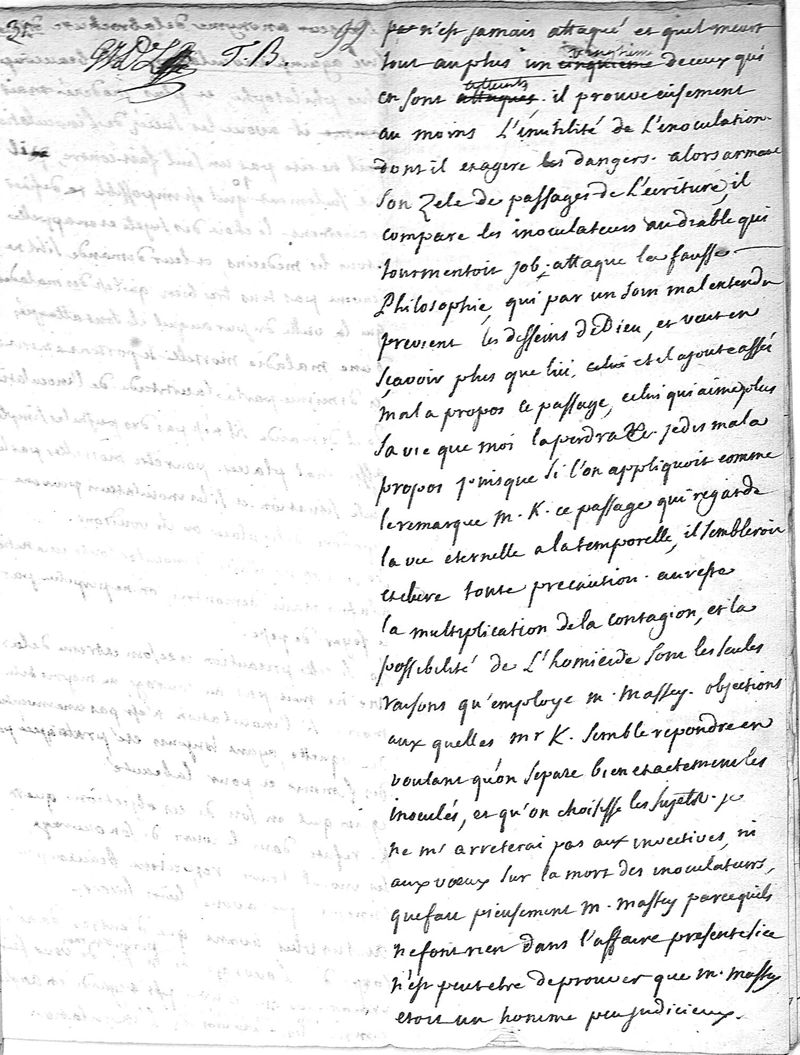 T. B. 99
n'est jamais attaqué et quil meurt
tout au plus un cinquieme vingtieme de ceux qui
en sont attaqués atteints. il prouve aisement
au moins L'inutilité de L'inoculation
dont il exagere les dangers. alors armant
son zele de passages de L'ecriture, il
compare les inoculateurs au diable qui
tourmentoit job, attaque la fausse
Philosophie, qui par un soin mal entendu
previent les desseins de Dieu, et veut en
sçavoir plus que lui. celui et il ajoute assés
mal a propos ce passage, celui qui aime plus
sa vie que moi la perdra. je dis mal a
propos puisque si l'on appliquoit comme
le remarque m. K. ce passage qui regarde
la vie eternelle a la temporelle, il sembleroit
exclure toute precaution. au reste
la multiplication de la contagion, et la
possibilité de L'homicide sont les seules
raisons qu'employe m. Massey. objections
aux quelles mr K. semble repondre en
voulant qu'on separe bien exactement les
inoculés, et qu'on choisisse les sujets. je
ne m'arreterai pas aux invectives, ni
aux vœux sur la mort des inoculateurs,
que fait pieusement m. Massey parcequ'ils
ne font rien dans l'affaire presente si ce
n'est peut etre de prouver que m. Massey
etoit un homme peu judicieux.